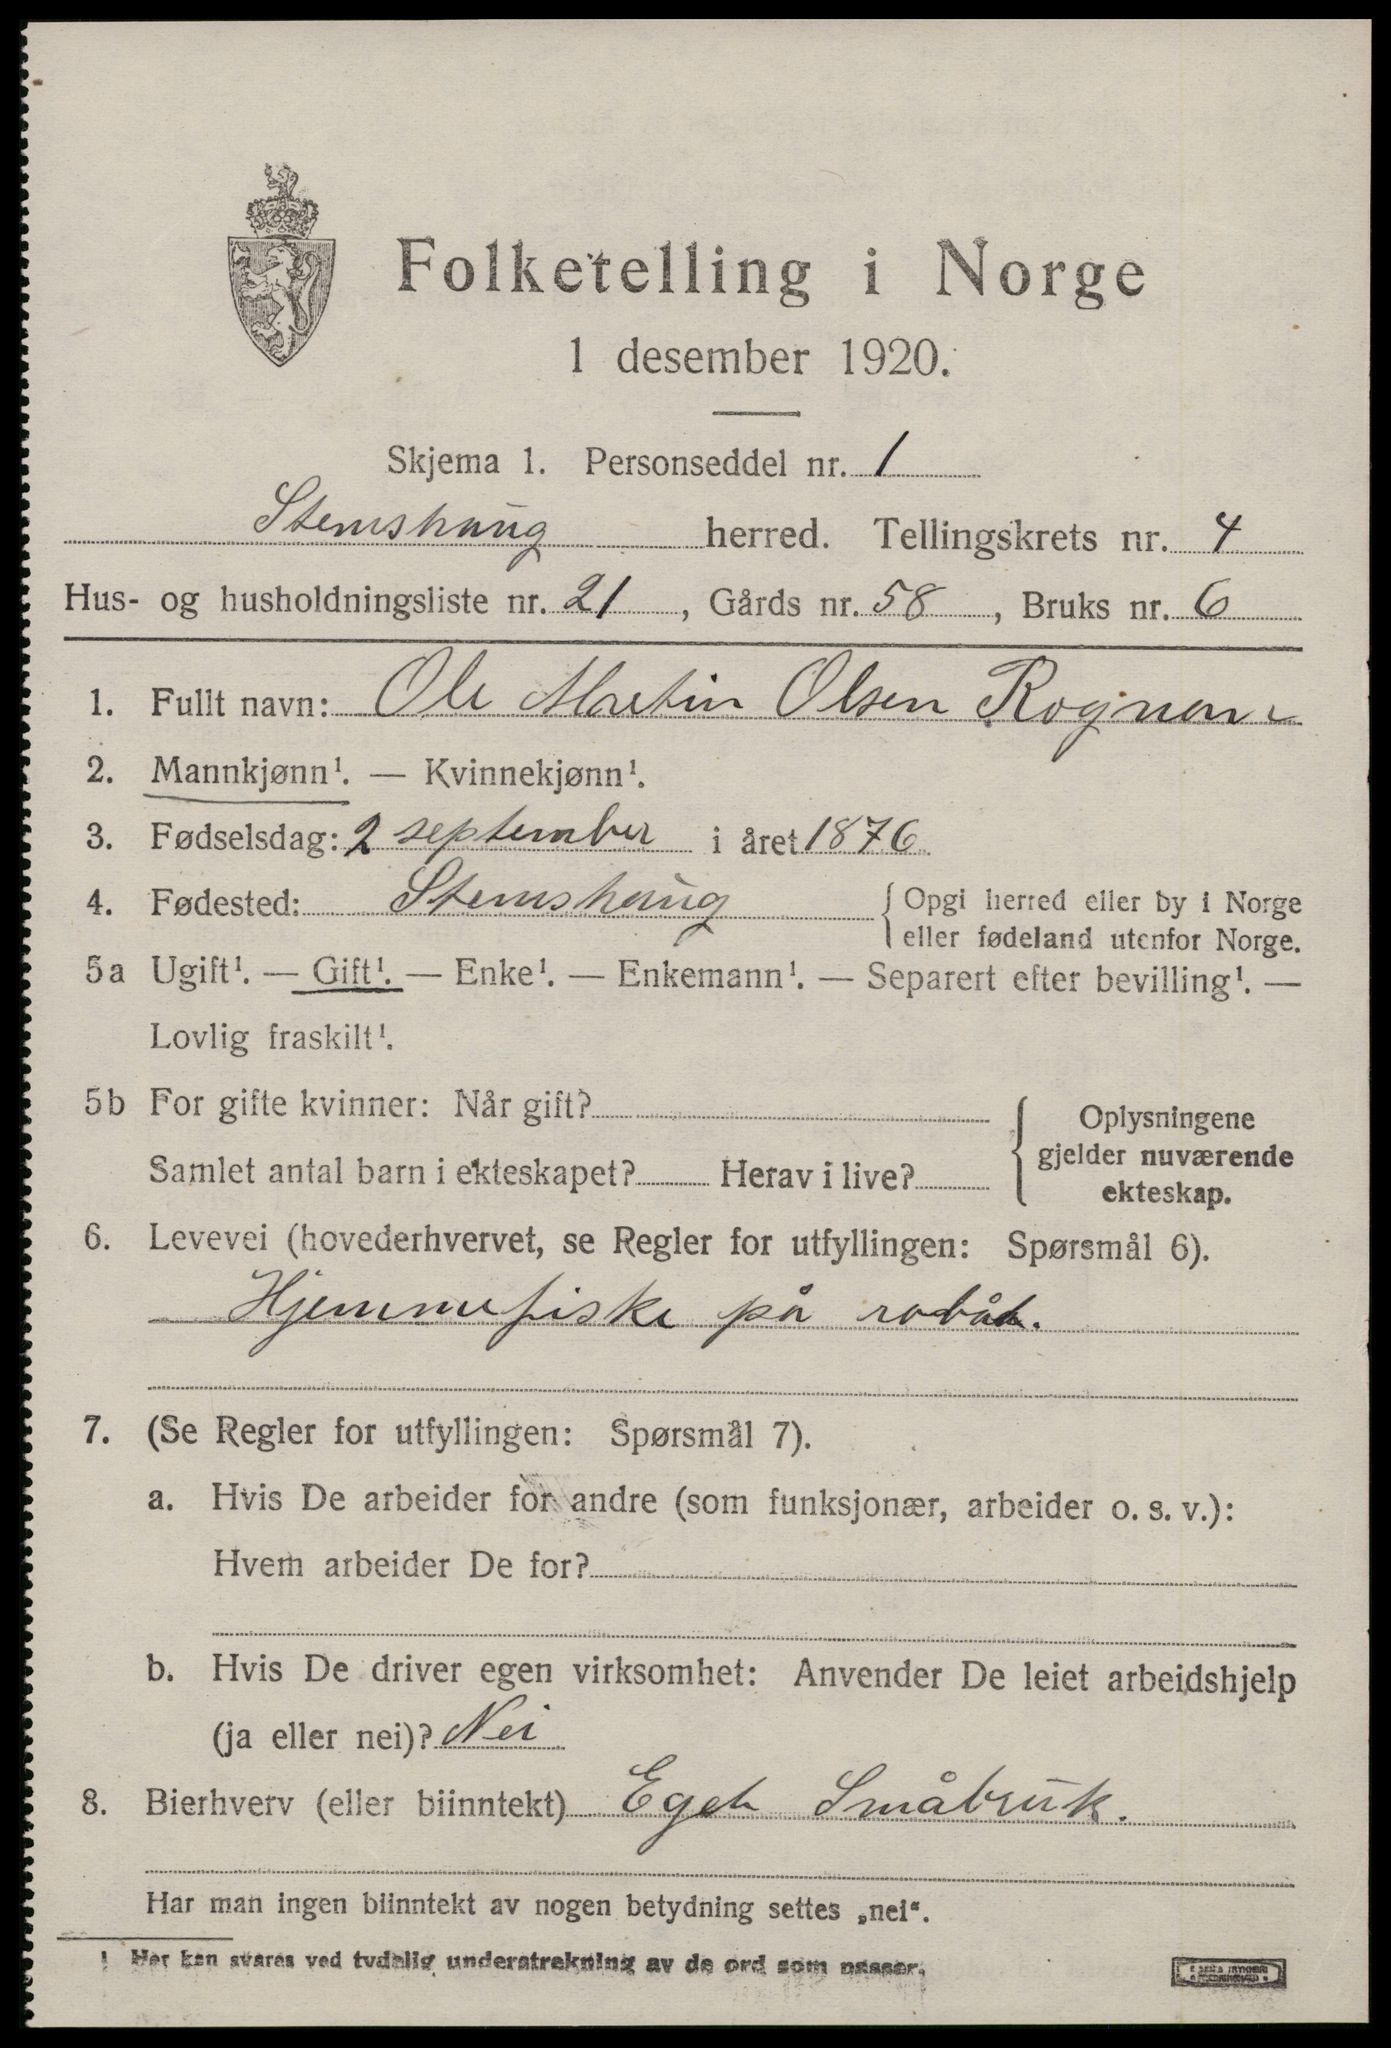 Folketelling i Norge
1 desember 1920.
Skjema 1. Personseddel nr. 1
Stemshaug herred. Tellingskrets nr. 4
Hus- og husholdningsliste nr. 21, Gårds nr. 58, Bruks nr. 6
1. Fullt navn: Ole Martin Olsen
2. Mannkjønn¹. — Kvinnekjønn¹.
3. Fødselsdag: 2 september i året 1876
4. Fødested: Stemshaug { Opgi herred eller by i Norge
eller fødeland utenfor Norge.
5a Ugift¹. — Gift¹. — Enke¹. — Enkemann¹. — Separert efter bevilling¹. —
Lovlig fraskilt¹.
5b For gifte kvinner: Når gift?
Samlet antal barn i ekteskapet? Herav i live?
Oplysningene
gjelder nuværende
ekteskap.
6. Levevei (hovederhvervet, se Regler for utfyllingen: Spørsmål 6).
Hjemmefiske på robåt.
7. (Se Regler for utfyllingen: Spørsmål 7).
a. Hvis De arbeider for andre (som funksjonær, arbeider o. s. v.):
Hvem arbeider De for?
b. Hvis De driver egen virksomhet: Anvender De leiet arbeidshjelp
(ja eller nei)? Nei
8. Bierhverv (eller biinntekt) Eget Småbruk.
Har man ingen biinntekt av nogen betydning settes „nei“.
1 Her kan svares ved tydelig understrekning av de ord som passer.